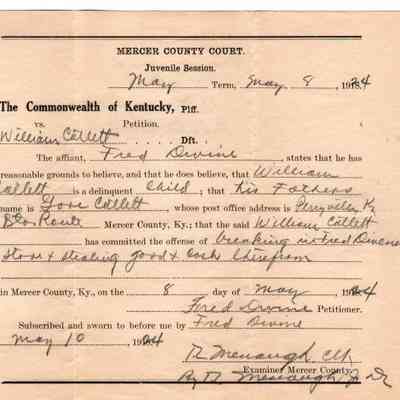 MERCER COUNTY COURT.
Juvenile Session.
May Term, May 8, 1924
The Commonwealth of Kentucky, Plf.
vs. Petition.
William Collett Dft.
The affiant, Fred Divine, states that he has
reasonable grounds to believe, and that he does believe, that William
Collett is a delinquent Child; that his Fathers
name is Collett, whose post office address is Perryville Ky
Route Mercer County, Ky.; that the said William Collett
has committed the offense of breaking in Fred Divines
Store & stealing goods & cash therefrom
in Mercer County, Ky., on the 8 day of May 1924
Fred Divine Petitioner.
Subscribed and sworn to before me by Fred Divine
May 10 1924
Menaugh Clk
Examiner Mercer County.
By Menaugh Jr